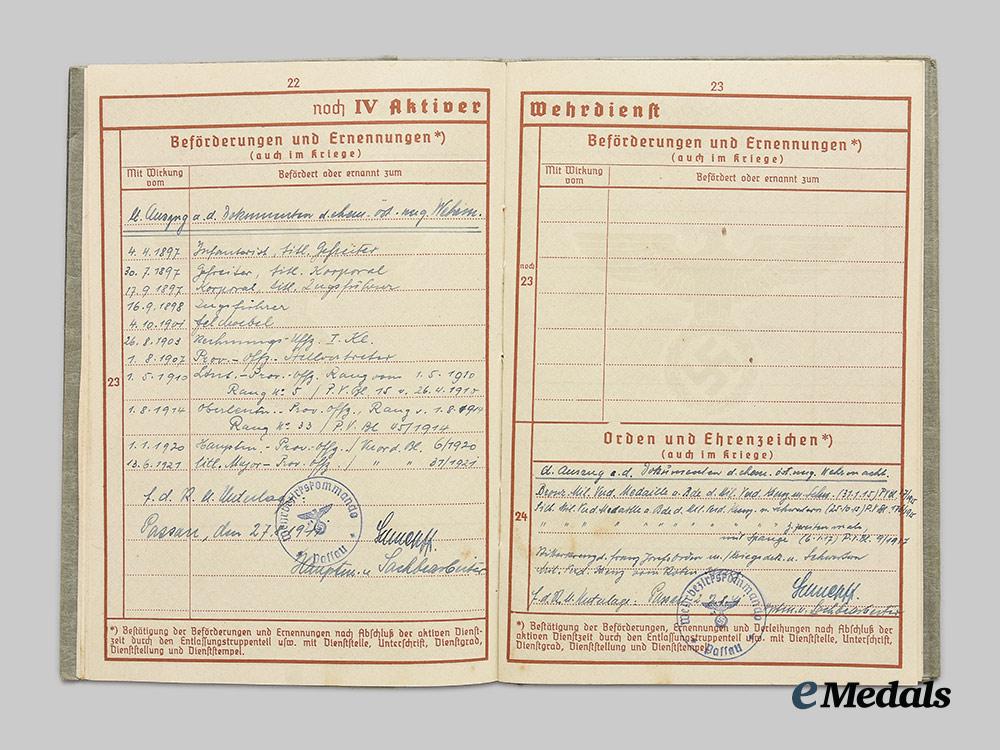 22
noch IV Aktiver
Beförderungen und Ernennungen*)
(auch im Kriege)
Mit Wirkung vom
Befördert oder ernannt zum
lt. Auszug a. d. Dokumenten d. ehem. öst. ung. Wehrm.
4. 4. 1897 Infanterist, titl. Gefreiter
30. 7. 1897 Gefreiter, titl. Korporal
17. 9. 1897 Korporal, titl. Zugsführer
16. 9. 1898 Zugsführer
4. 10. 1901 Feldwebel
26. 8. 1903 Rechnungs-Uffz. I. Kl.
1. 8. 1907 Prov.-Offz. Stellvertreter
23
1. 5. 1910 Leut.-Prov.-Offz. Rang vom 1. 5. 1910
Rang No 5 / P.V. Bl. 15 v. 26. 4. 1910
1. 8. 1914 Oberleutn. Prov. Offz., Rang v. 1. 8. 1914
Rang No 33 / P.V. Bl. 45/1914
1. 1. 1920 Hauptm.-Prov.-Offz. / Bl. 6/1920
13. 6. 1921 titl. Major-Prov. Offz. / " " 31/1921
f. d. R. d. Unterlage:
Passau, den 27.
Wehrbezirkskommando Passau
Hauptm. u. Sachbearbeiter
*) Bestätigung der Beförderungen und Ernennungen nach Abschluß der aktiven Dienst-
zeit durch den Entlassungstruppenteil usw. mit Dienststelle, Unterschrift, Dienstgrad,
Dienststellung und Dienststempel.
23
Wehrdienst
Beförderungen und Ernennungen*)
(auch im Kriege)
Mit Wirkung vom
Befördert oder ernannt zum
noch
23
Orden und Ehrenzeichen*)
(auch im Kriege)
d. Auszug a. d. Dokumenten d. ehem. öst. ung. Wehrmacht.
Bronz. Mil. Verd. Medaille a. Bde d. Mil. Verd. Kreuz m. Schw. (31.1.15)
24
Silb. Mil. Verd. Medaille a. Bde d. Mil. Verd. Kreuz m. Schwertern
" " " " " " " " " z. zweiten male
mit Spange (6.1.17) P.V. Bl. 9/1917
Franz Josefs Orden m. Kriegsdek. u. Schwerten
vom Roten
f. d. R. d. Unterlage. Passau
Wehrbezirkskommando Passau
Hptm. u. Sachbearbeiter
*) Bestätigung der Beförderungen, Ernennungen und Verleihungen nach Abschluß der
aktiven Dienstzeit durch den Entlassungstruppenteil usw. mit Dienststelle, Unterschrift,
Dienstgrad, Dienststellung und Dienststempel.
eMedals